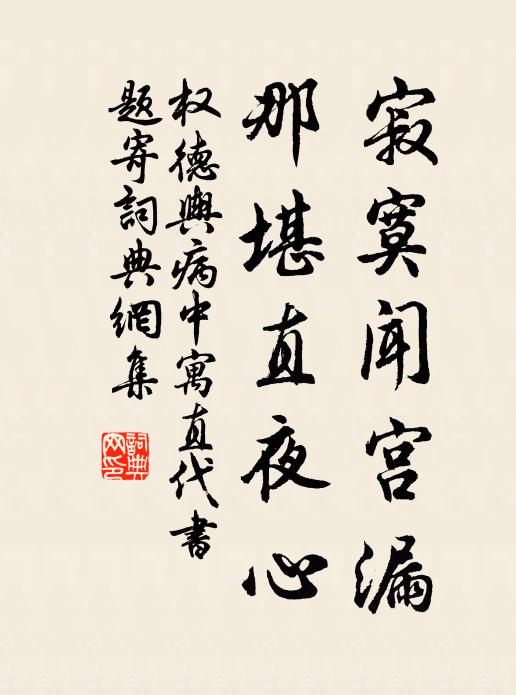 寂寞闻宫漏
那堪直夜心
权德舆病中寓直代书
题寄词典網集
詞典网印